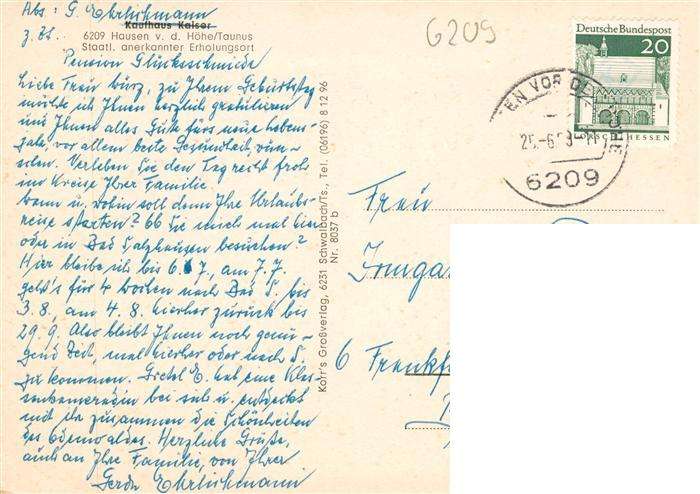 Abs: G. Ehrlichmann
Kaufhaus Kaiser
z. Zt. 6209 Hausen v. d. Höhe/Taunus
Staatl. anerkannter Erholungsort
Pension Glücksschmiede
Liebe Frau Kurz, zu Ihrem Geburtstag
möchte ich Ihnen herzlich gratulieren
und Ihnen alles Gute fürs neue Lebens-
jahr, vor allem beste Gesundheit, wün-
schen. Verleben Sie den Tag recht froh
im Kreise Ihrer Familie.
Wann u. wohin soll denn Ihre Urlaubs-
reise starten? Ob Sie mich mal hier
oder in Bad Salzhausen besuchen?
Hier bleibe ich bis 6.7., am 7.7.
geht's für 4 Wochen nach Bad S. bis
3.8., am 4.8. hierher zurück bis
29.9. Also bleibt Ihnen noch genü-
gend Zeit, mal hierher oder nach S.
zu kommen. Gretel E. hat eine Klas-
senkameradin bei sich u. entdeckt
mit ihr zusammen die Schönheiten
des Odenwaldes. Herzliche Grüße,
auch an Ihre Familie, von Ihrer
Gerda Ehrlichmann
Korr's Großverlag, 6231 Schwalbach/Ts., Tel. (06196) 8 12 96
Nr. 8037 b
6209
Deutsche Bundespost
20
LORSCH/HESSEN
EN VOR DE
6209
Frau
Irmga
6 Frankf